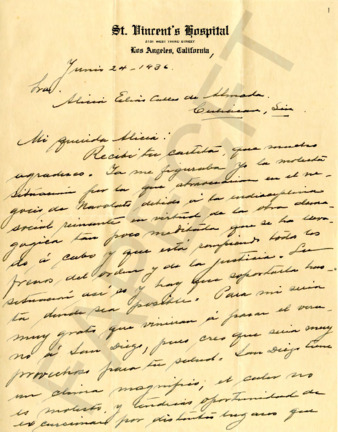 1
St. Vincent's Hospital
2131 WEST THIRD STREET
Los Angeles, California,
Junio 24-1936.
Sra.
Alicia Elías Calles de Almada.
Culiacan, Sin
Mi querida Alicia:
Recibí tu cartita, que mucho
agradezco. Ya me figuraba yo la molesta
situación por la que atraviesan en el ne-
gocio de Navolato debido á la indisciplina
social reinante en virtud de la obra dema-
gogica tan poco meditada que se ha leva-
do á cabo y que está rompiendo todos los
frenos del orden y de la justicia. La
situación así es y hay que soportarla has-
ta donde sea posible. Para mi sería
muy grato que vinieran á pasar el vera-
no á San Diego, pues creo que sería muy
provechoso para tu salud. San Diego tiene
un clima magnifico, el calor no
es molesto, y tendrías oportunidad de
excursionar por distintos lugares que